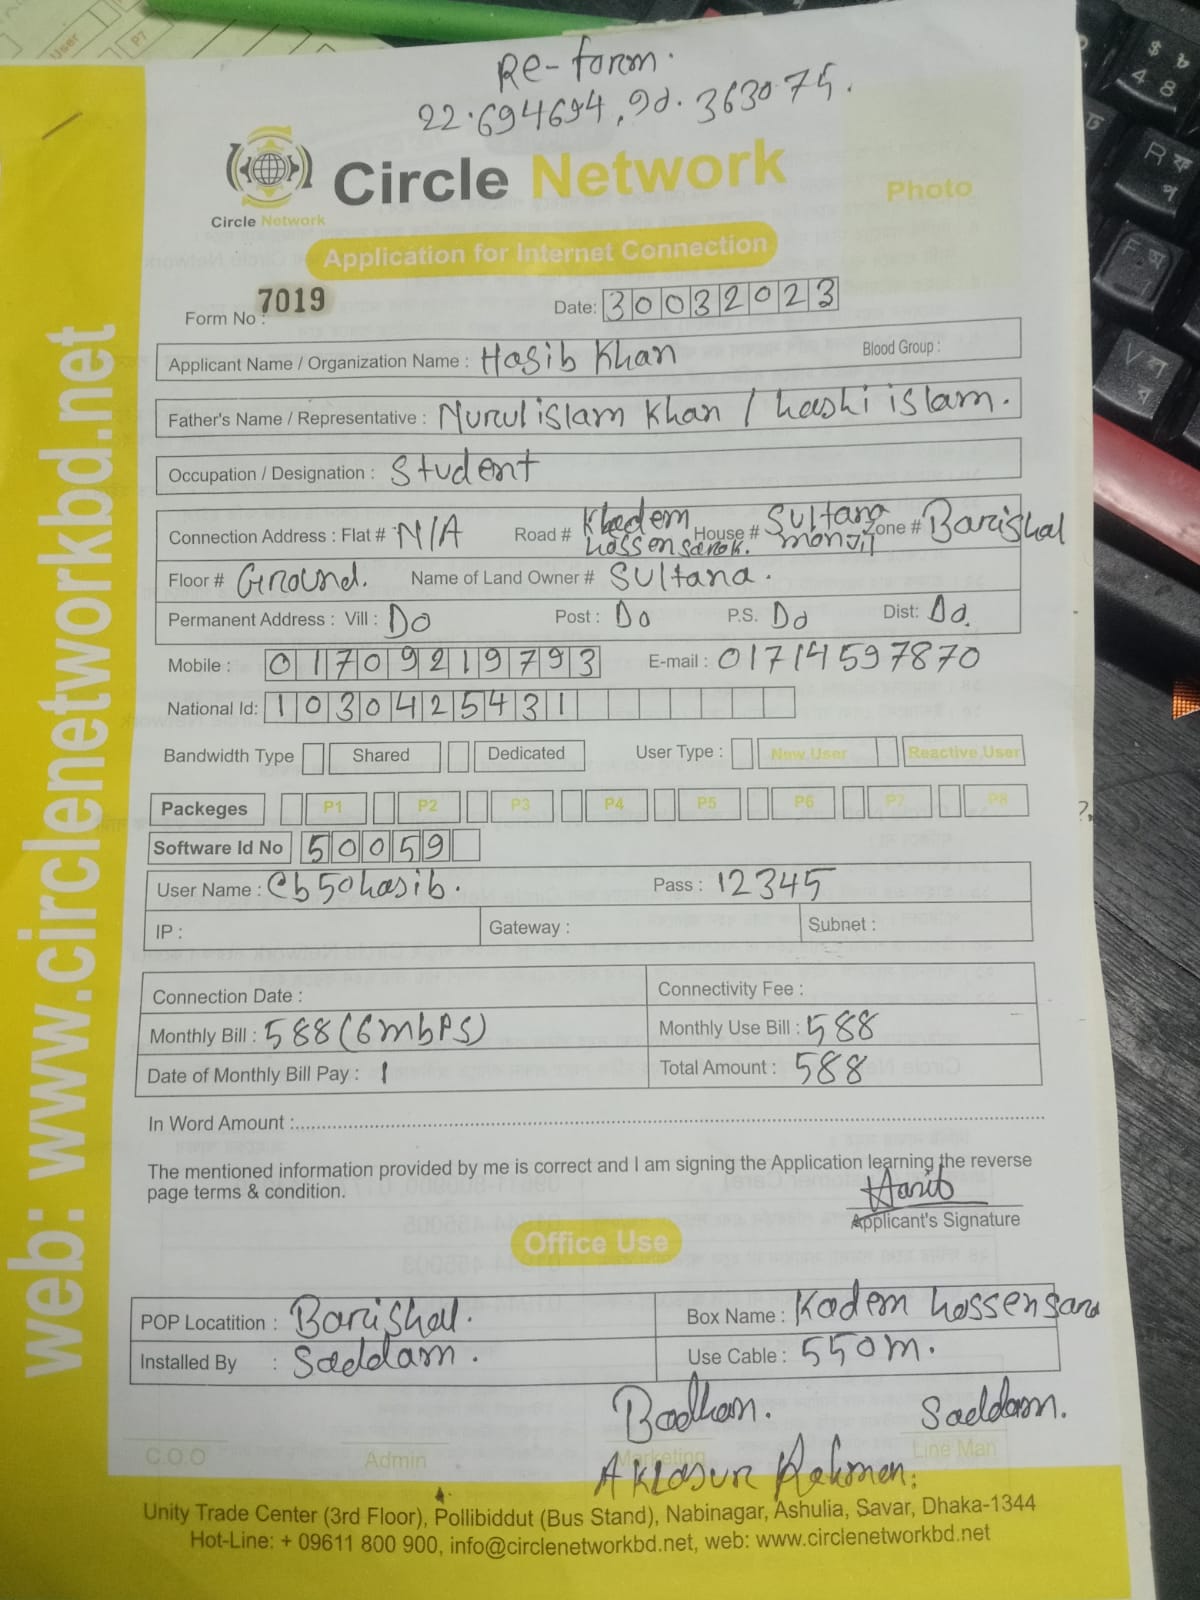 Re-form.
22.694694, 90.363075.
Circle Network
Circle Network
Photo
Application for Internet Connection
Form No : 7019 Date: 30032023
Applicant Name / Organization Name : Hasib Khan Blood Group :
Father's Name / Representative : Nurul islam Khan / hashi islam.
Occupation / Designation : Student
Connection Address : Flat # N/A Road # Khadem hossen sarok. House # Sultana monjil Zone # Barishal
Floor # Ground. Name of Land Owner # Sultana.
Permanent Address : Vill : Do Post : Do P.S. Do Dist: Do.
Mobile : 01709219793 E-mail : 01714597870
National Id: 1030425431
Bandwidth Type Shared Dedicated User Type : New User Reactive User
Packeges P1 P2 P3 P4 P5 P6 P7 P8
Software Id No 50059
User Name : Cb50hasib. Pass : 12345
IP : Gateway : Subnet :
Connection Date : Connectivity Fee :
Monthly Bill : 588 (6mbPS) Monthly Use Bill : 588
Date of Monthly Bill Pay : 1 Total Amount : 588
In Word Amount :
The mentioned information provided by me is correct and I am signing the Application learning the reverse
page terms & condition.
Hasib
Applicant's Signature
Office Use
POP Locatition : Barishal. Box Name : Kadem hossen saro
Installed By : Saddam. Use Cable : 550m.
Badhan. Saddam.
C.O.O Admin Marketing Line Man
Rahman.
Unity Trade Center (3rd Floor), Pollibiddut (Bus Stand), Nabinagar, Ashulia, Savar, Dhaka-1344
Hot-Line: + 09611 800 900, info@circlenetworkbd.net, web: www.circlenetworkbd.net
web: www.circlenetworkbd.net
User
P7
$ 4 8
R
F
V